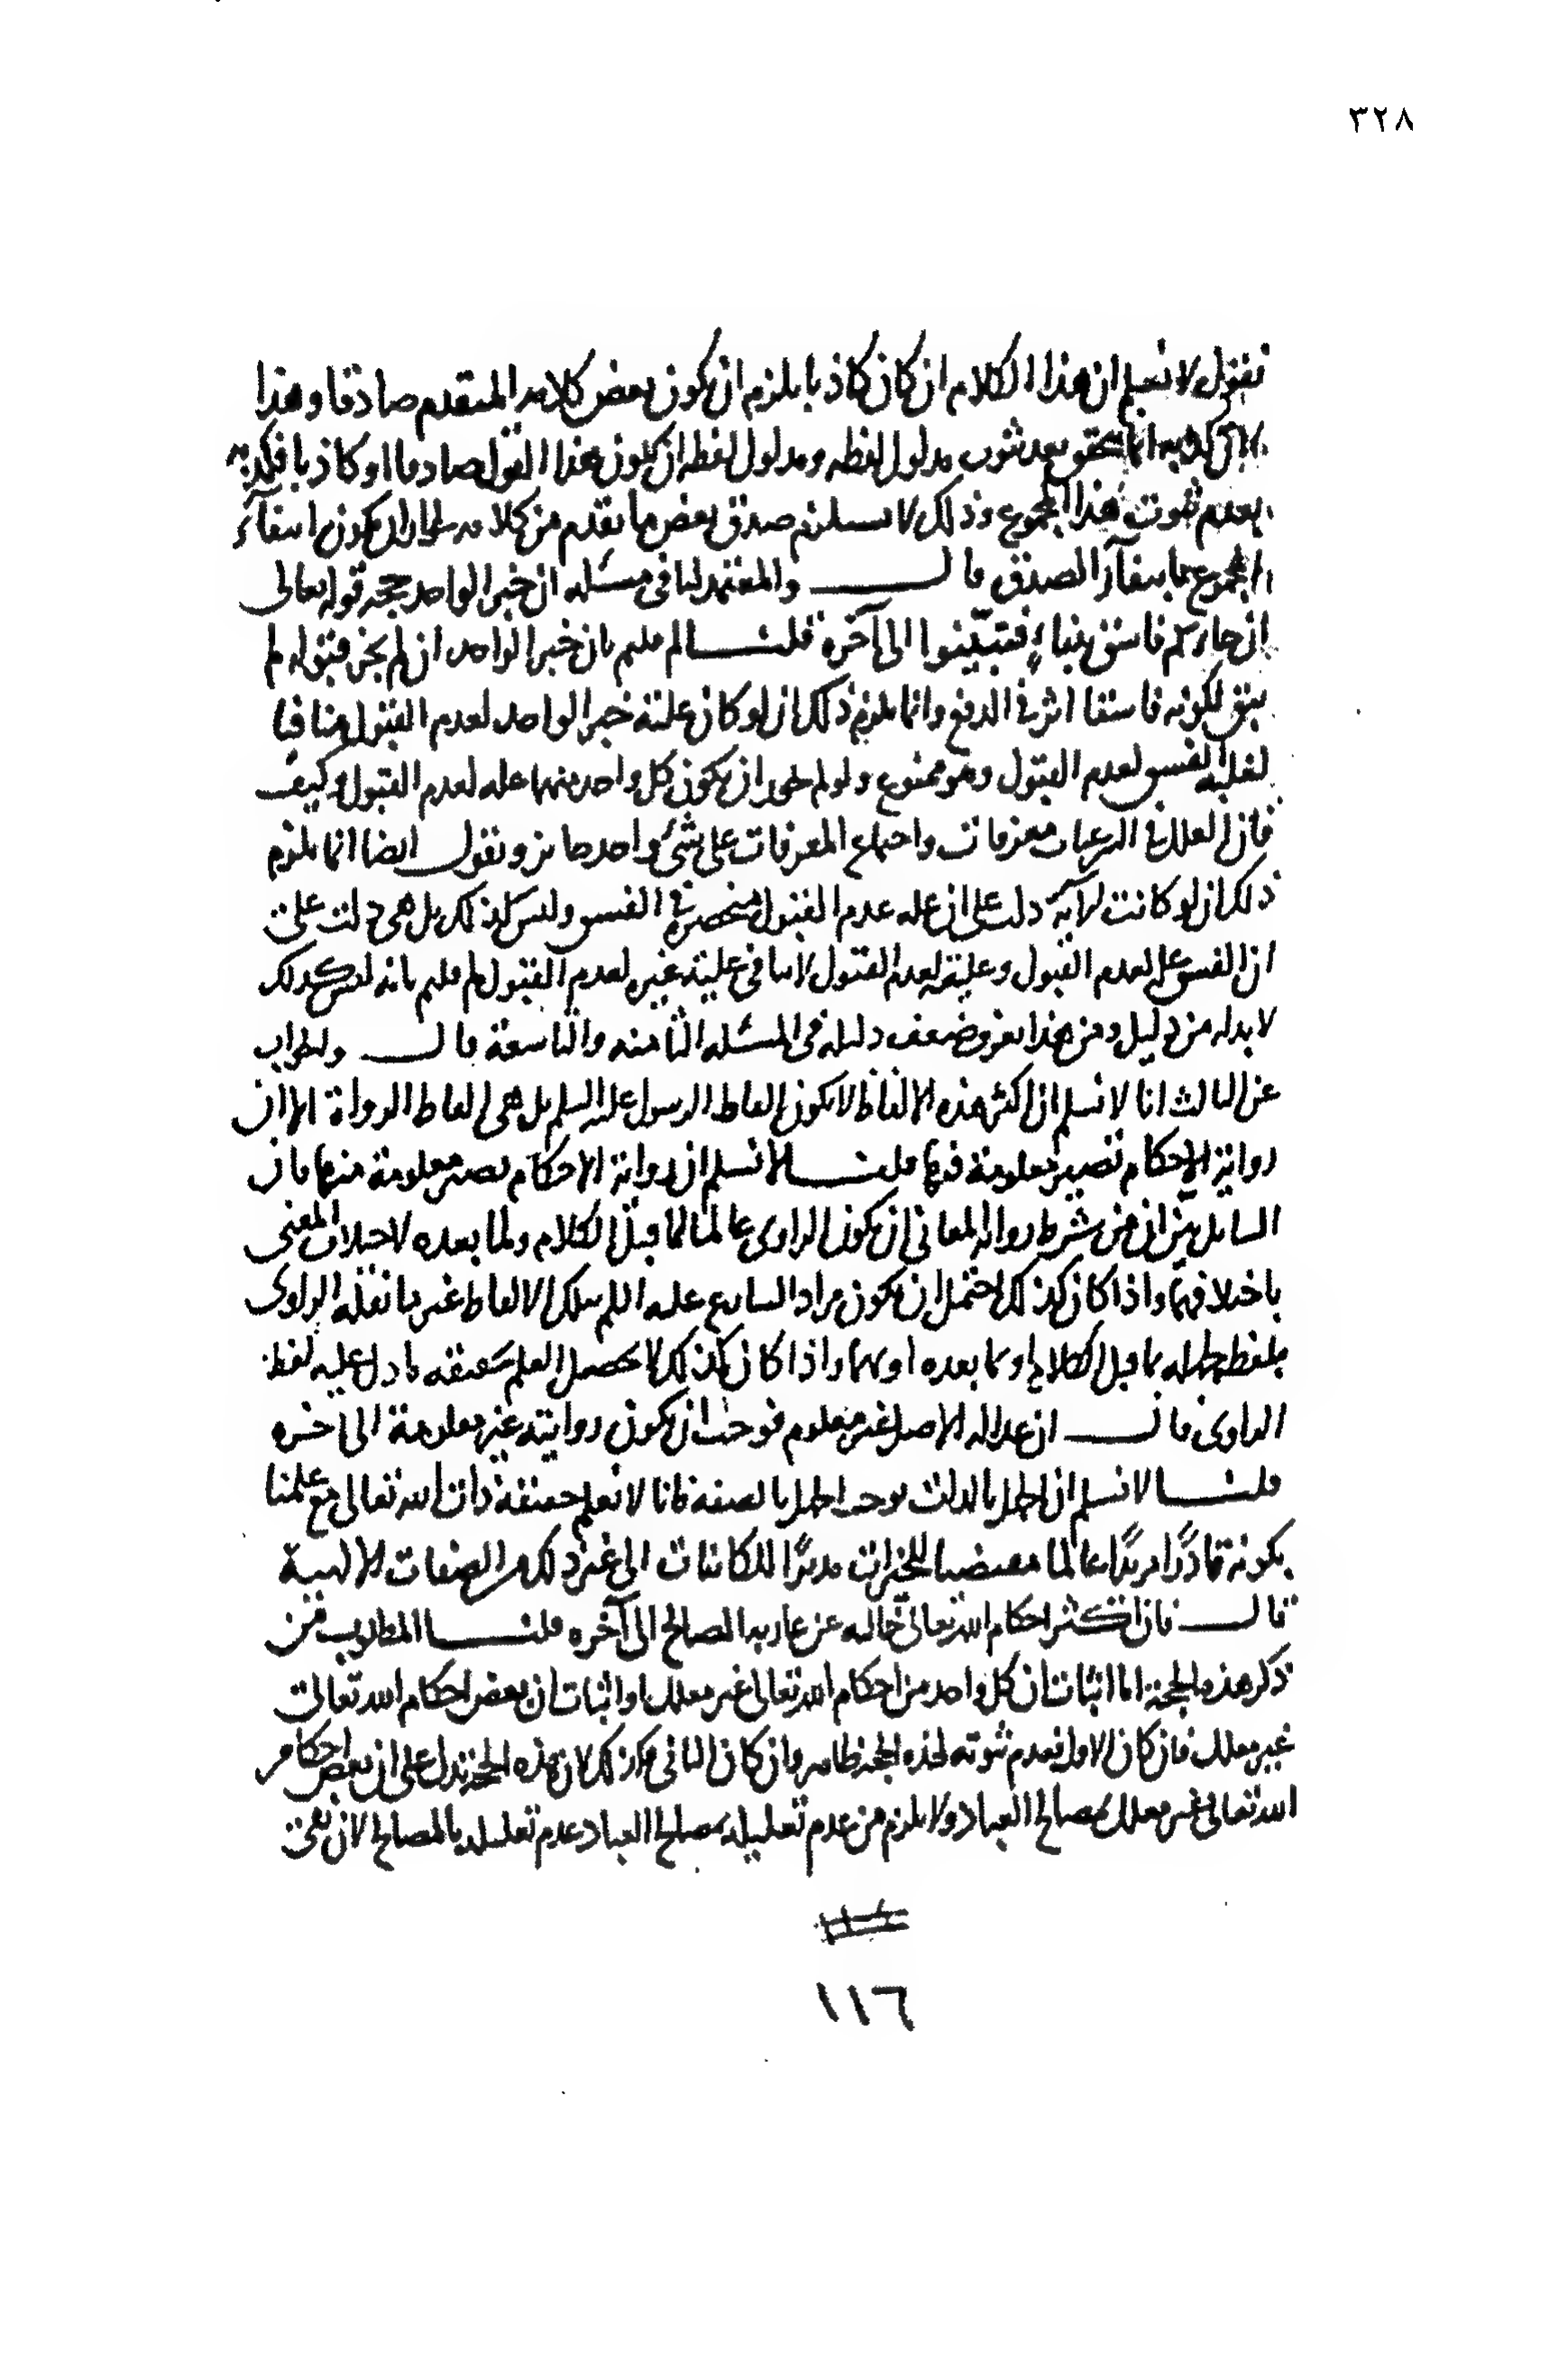 ٣٢٨
نقول لا نسلم ان هذا الكلام ان كان كاذبا يلزم ان يكون بعض كلامه المتقدم صادقا وهذا
لان كذبه انما يتحقق بعدم ثبوت مدلول لفظه ومدلول لفظه ان يكون هذا القول صادقا او كاذبا فكذبه
بعدم ثبوت هذا المجموع وذلك لا يستلزم صدق بعض ما تقدم من كلامه لجواز ان يكون انتفآء
المجموع بانتفآء الصدق قال والمعتمد لنا في مسئلة ان خبر الواحد حجة قوله تعالى
ان جاءكم فاسق بنباءٍ فتبيّنوا الى آخره قلنا لم قلتم بان خبر الواحد ان لم يجز قبوله لم
يبق لكونه فاسقا اثر في الدفع وانما يلزم ذلك ان لو كان علية خبر الواحد لعدم القبول منافيا
لعلية الفسق لعدم القبول وهو ممنوع ولم لا يجوز ان يكون كل واحد منهما علة لعدم القبول وكيف
فان العلل في الشرعيات معرفات واجتماع المعرفات على شئ واحد جائز ونقول ايضا انما يلزم
ذلك ان لو كانت الآية دلت على ان علة عدم القبول منحصرة في الفسق وليس كذلك بل هي دلت على
ان الفسق علة لعدم القبول وعليته لعدم القبول لا ينافي علية غيره لعدم القبول لم قلتم بانه ليس كذلك
لا بد له من دليل ومن هذا يعرف ضعف دليله في المسئلة الثامنة والتاسعة قال والجواب
عن الثالث انا لا نسلم ان اكثر هذه الالفاظ لا يكون الفاظ الرسول عليه السلم بل هي الفاظ الرواة الا ان
رواية الاحكام تصير معلومة فيها قلنا لا نسلم ان رواية الاحكام يصير معلومة منها فان
السائل بيّن ان من شرط رواية المعاني ان يكون الراوي عالما لما قبل الكلام ولما بعده لاختلاف المعنى
باختلافهما واذا كان كذلك احتمل ان يكون مراد الشارع عليه السلم بتلك الالفاظ غير ما نقله الراوي
بلفظه لجهله بما قبل الكلام او بما بعده او بهما واذا كان كذلك لا يحصل العلم بحقيقة ما دل عليه لفظ
الراوي قال ان عدالة الاصل غير معلوم فوجب ان يكون روايته غير معلومة الى آخره
قلنا لا نسلم ان الجهل بالذات يوجب الجهل بالصفة فانا لا نعلم حقيقة ذات الله تعالى مع علمنا
بكونه قادرًا مريدًا عالما مفيضا للخيرات مدبرًا للكائنات الى غير ذلك من الصفات الالهية
قال فان اكثر احكام الله تعالى خالية عن عارية المصالح الى آخره قلنا المطلوب من
ذكر هذه الحجة اما اثبات ان كل واحد من احكام الله تعالى غير معلل او اثبات ان بعض احكام الله تعالى
غير معلل فان كان الاول فعدم ثبوته لهذه الحجة ظاهر وان كان الثاني فكذلك لان هذه الحجة تدل على ان بعض احكام
الله تعالى غير معلل بمصالح العباد ولا يلزم من عدم تعليله بمصالح العباد عدم تعليله بالمصالح لان نفي
١١٦